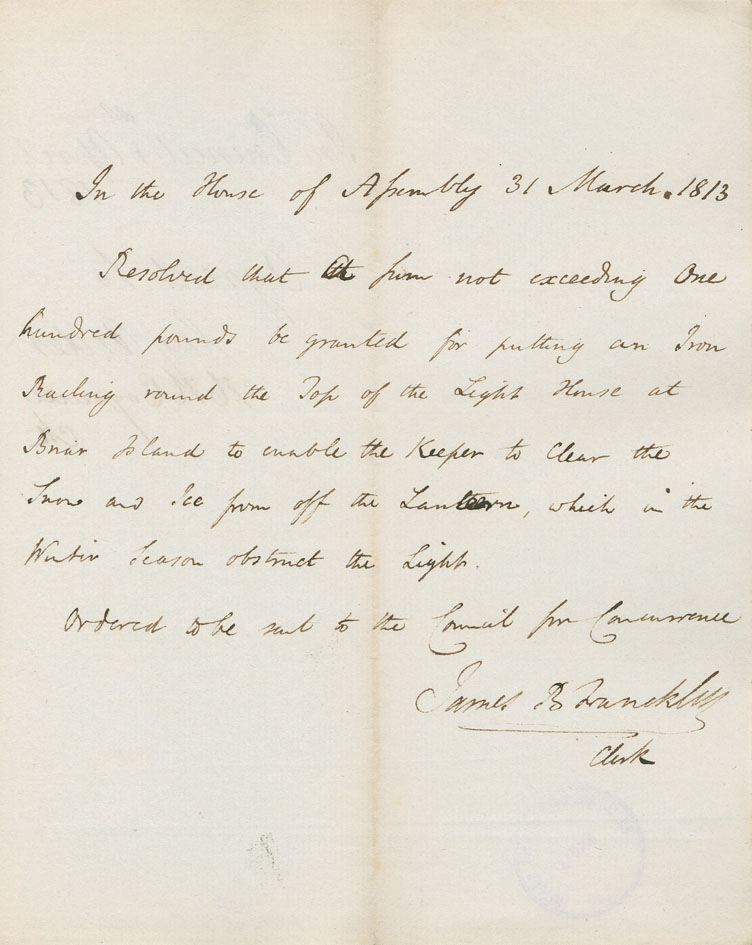 In the House of Assembly 31 March. 1813
Resolved that a sum not exceeding One
hundred pounds be granted for putting an Iron
Raeling round the Top of the Light House at
Briar Island to enable the Keeper to Clear the
Snow and Ice from off the Lantern, which in the
Winter Season obstruct the Light.
Ordered to be sent to the Council for Concurrence
James B Francklin
Clerk